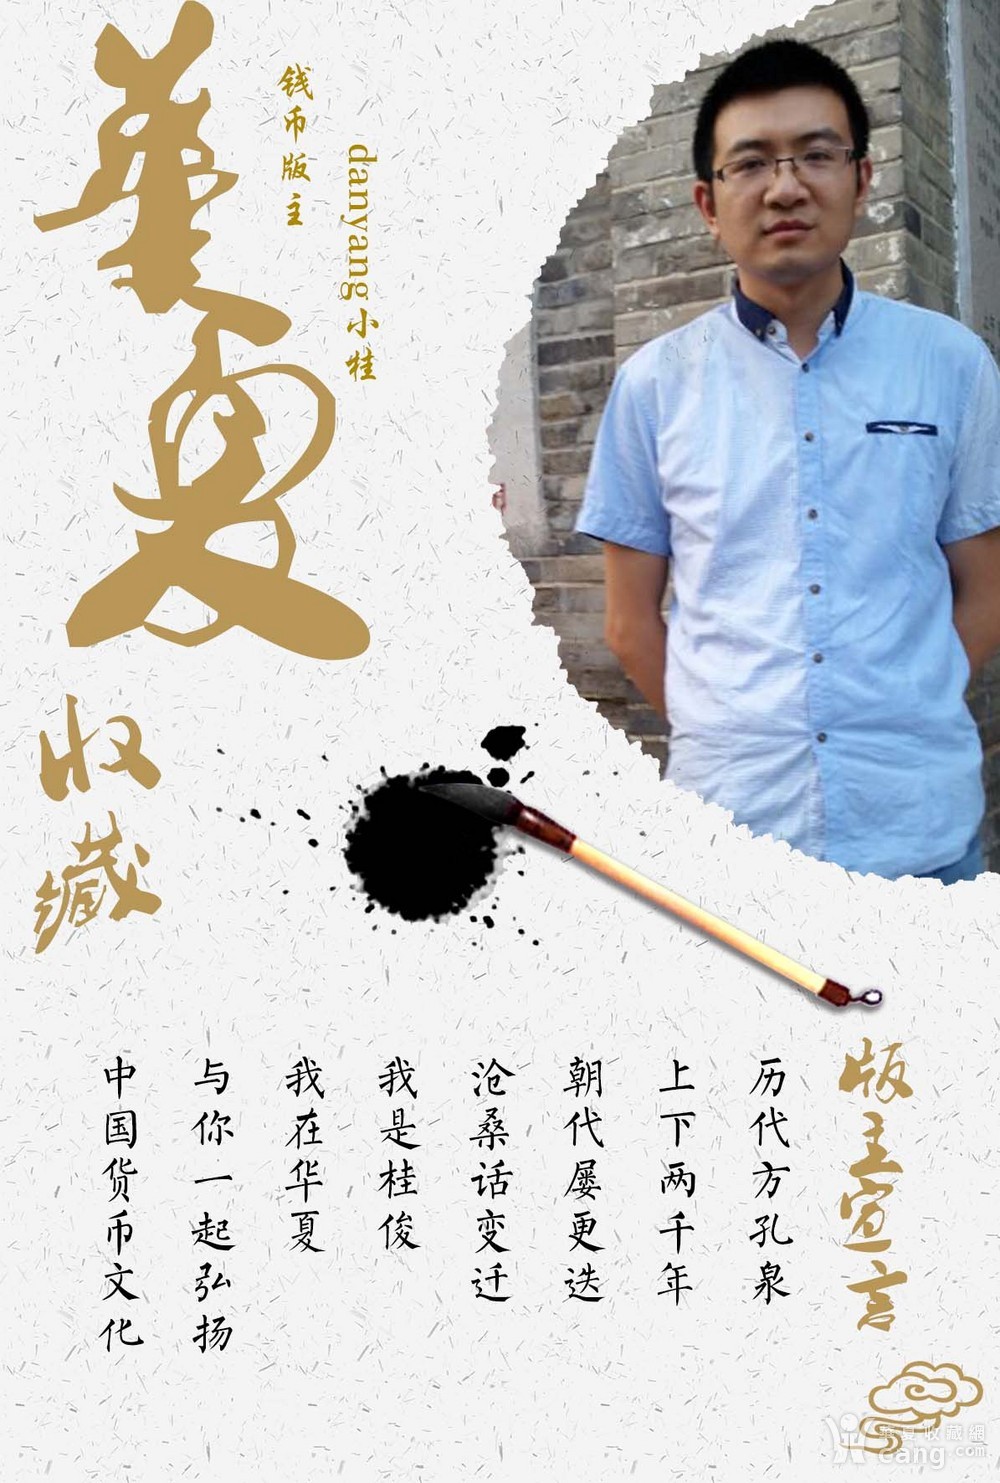 華夏
收藏
钱币版主
danyang小桂
版主宣言
历代方孔泉
上下两千年
朝代屡更迭
沧桑话变迁
我是桂俊
我在华夏
与你一起弘扬
中国货币文化
華夏收藏網
cang.com